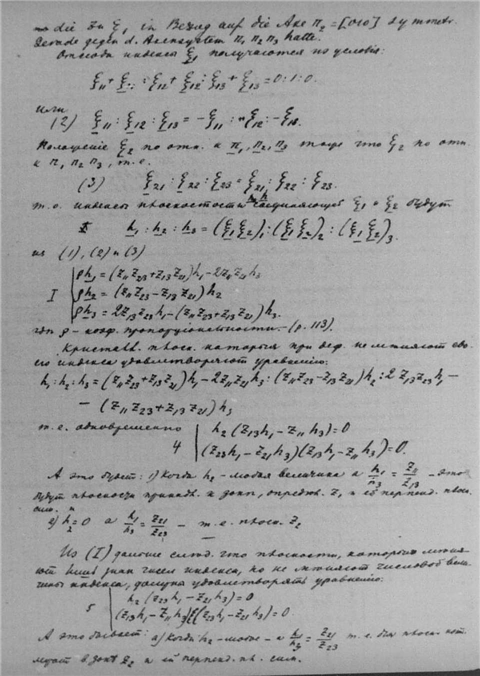 die zu ξ1 in Bezug auf die Axe π2 = [010] symmetr.
Gerade gegen d. Axensystem π1 π2 π3 hatte.
Отсюда индексы ξ1 получаются из условія:
ξ11 + ξ11 : ξ12 + ξ12 : ξ13 + ξ13 = 0:1:0.
или
(2) ξ11 : ξ12 : ξ13 = -ξ11 : ξ12 : -ξ13.
Положеніе ξ2 по отн. к π1, π2, π3 тоже что ξ2 по отн.
к π1 π2 π3, т.е.
(3) ξ21 : ξ22 : ξ23 = ξ21 : ξ22 : ξ23.
т.е. индексы плоскости соединяющей ξ1 и ξ2 будут
h1 : h2 : h3 = (ξ1 ξ2)1 : (ξ1 ξ2)2 : (ξ1 ξ2)3.
из (1), (2) и (3)
ρh1 = (z11 z23 + z13 z21) h1 - 2z11 z21 h3
I ρh2 = (z11 z23 - z13 z21) h2
ρh3 = 2z13 z23 h1 - (z11 z23 + z13 z21) h3.
где ρ - коэф. пропорціональности. - (p. 113).
Кристалл. плоск. которыя при деф. не мѣняют сво-
его индекса удовлетворяют уравненію:
h1:h2:h3 = (z11 z23 + z13 z21) h1 - 2z11 z21 h3 : (z11 z23 - z13 z21) h2 : 2 z13 z23 h1 -
- (z11 z23 + z13 z21) h3
т.е. одновременно h2 (z13 h1 - z11 h3) = 0
4 (z23 h1 - z21 h3)(z13 h1 - z11 h3) = 0.
А это будет: 1) Когда h2 - любая величина а h1/h3 = z11/z13 - это
будут плоскости принадл. к зонѣ, опредѣл. z1 и ей перпенд. плоск.
2) h2 = 0 а h1/h3 = z21/z23 - т.е. плоск. z2
Из (I) дальше слѣд. что плоскости, которыя мѣня-
ют лишь знак чисел индекса, но не мѣняют числовой вели-
чины индекса, должны удовлетворять уравненію:
5 h2 (z23 h1 - z21 h3) = 0
(z13 h1 - z11 h3)(z23 h1 - z21 h3) = 0
А это бывает: а) Когда h2 - любое - а h1/h3 = z21/z23 т.е. для плоск. кот.
лежат в зонѣ z2 и ей перпенд. пл.